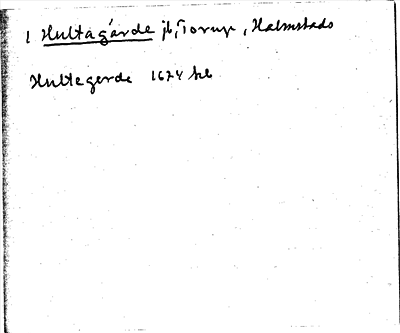 1 Hultagärde jb, Torup, Halmstads
Hultegerde 1624 hb